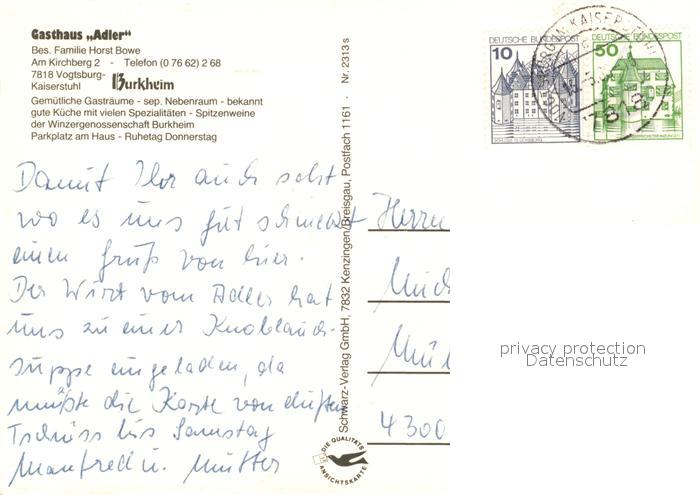 Gasthaus „Adler"
Bes. Familie Horst Bowe
Am Kirchberg 2 - Telefon (0 76 62) 2 68
7818 Vogtsburg-
Kaiserstuhl Burkheim
Gemütliche Gasträume - sep. Nebenraum - bekannt
gute Küche mit vielen Spezialitäten - Spitzenweine
der Winzergenossenschaft Burkheim
Parkplatz am Haus - Ruhetag Donnerstag
Damit Ihr auch seht
wo es uns gut schmeckt
einen Gruß von hier.
Der Wirt vom Adler hat
uns zu einer Knoblauch-
suppe eingeladen, da
müßte die Karte von duften
Tschüss bis Samstag
Manfred u. Mutter
Schwarz-Verlag GmbH, 7832 Kenzingen/Breisgau, Postfach 1161 · Nr. 2313 s
DIE QUALITÄTS
ANSICHTSKARTE
DEUTSCHE BUNDESPOST
10
SCHLOSS GLÜCKSBURG
DEUTSCHE BUNDESPOST
50
7818
Herrn
4300
privacy protection
Datenschutz